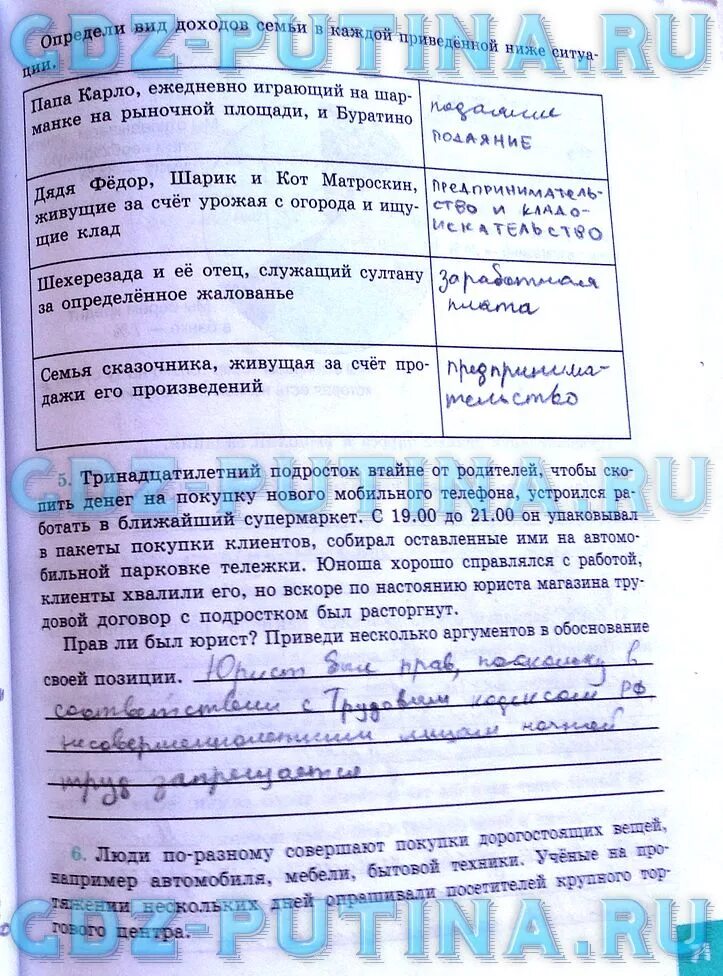 GDZ-PUTINA.RU
Определи вид доходов семьи в каждой приведённой ниже ситуа-
ции.
Папа Карло, ежедневно играющий на шар-
манке на рыночной площади, и Буратино
подаяние
ПОДАЯНИЕ
Дядя Фёдор, Шарик и Кот Матроскин,
живущие за счёт урожая с огорода и ищу-
щие клад
ПРЕДПРИНИМАТЕЛЬ-
СТВО И КЛАДО-
ИСКАТЕЛЬСТВО
Шехерезада и её отец, служащий султану
за определённое жалованье
заработная
плата
Семья сказочника, живущая за счёт про-
дажи его произведений
предпринима-
тельство
5. Тринадцатилетний подросток втайне от родителей, чтобы ско-
пить денег на покупку нового мобильного телефона, устроился ра-
ботать в ближайший супермаркет. С 19.00 до 21.00 он упаковывал
в пакеты покупки клиентов, собирал оставленные ими на автомо-
бильной парковке тележки. Юноша хорошо справлялся с работой,
клиенты хвалили его, но вскоре по настоянию юриста магазина тру-
довой договор с подростком был расторгнут.
Прав ли был юрист? Приведи несколько аргументов в обоснование
своей позиции. Юрист был прав, поскольку в
соответствии с Трудовым кодексом РФ
несовершеннолетним лицам ночной
труд запрещается
6. Люди по-разному совершают покупки дорогостоящих вещей,
например автомобиля, мебели, бытовой техники. Учёные на про-
тяжении нескольких дней опрашивали посетителей крупного тор-
гового центра.
GDZ-PUTINA.RU